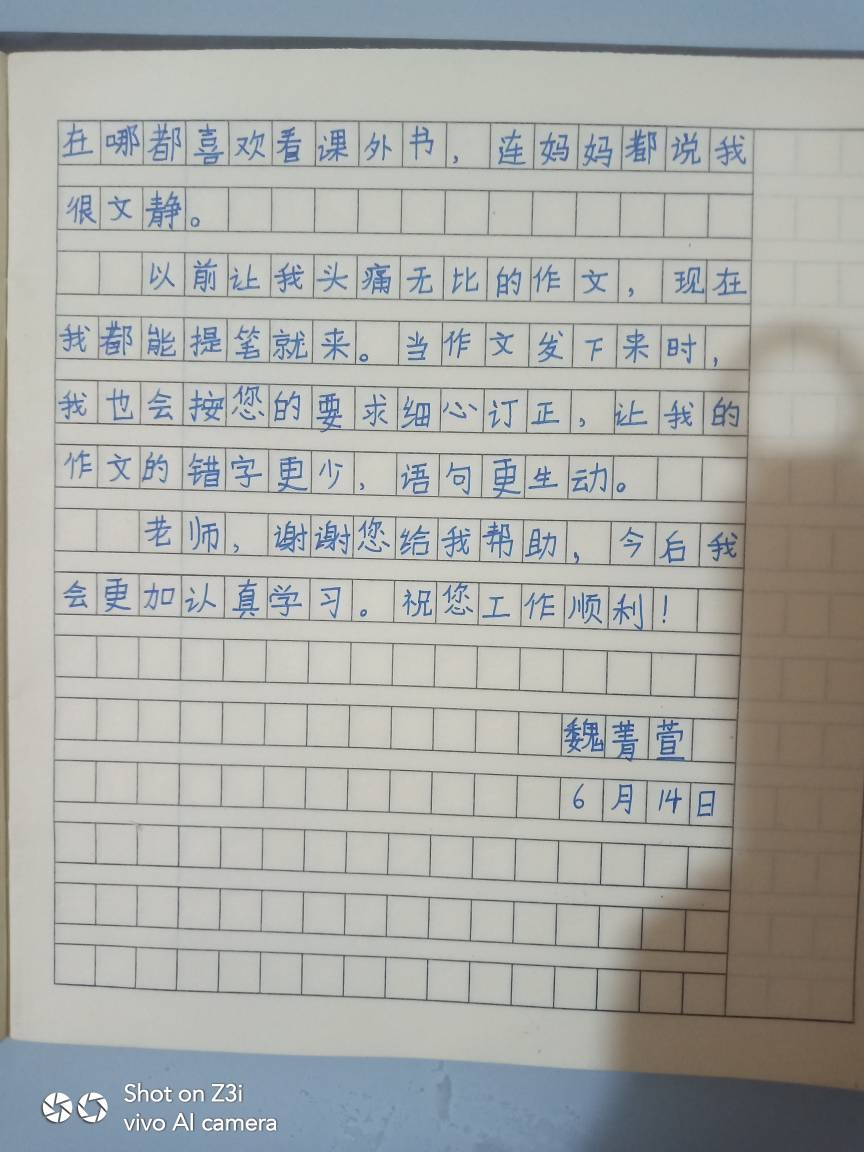 在哪都喜欢看课外书，连妈妈都说我
很文静。
以前让我头痛无比的作文，现在
我都能提笔就来。当作文发下来时，
我也会按您的要求细心订正，让我的
作文的错字更少，语句更生动。
老师，谢谢您给我帮助，今后我
会更加认真学习。祝您工作顺利！
魏菁萱
6月14日
Shot on Z3i
vivo AI camera